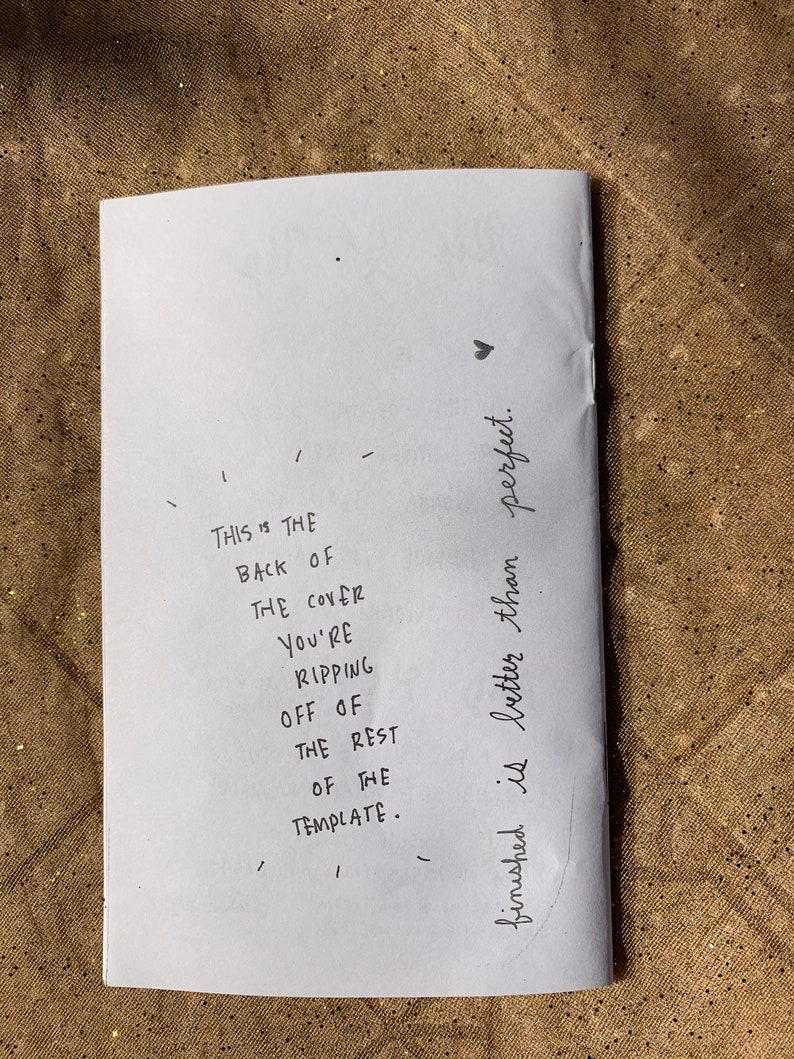 THIS IS THE
BACK OF
THE COVER
YOU'RE
RIPPING
OFF OF
THE REST
OF THE
TEMPLATE.
finished is better than perfect.